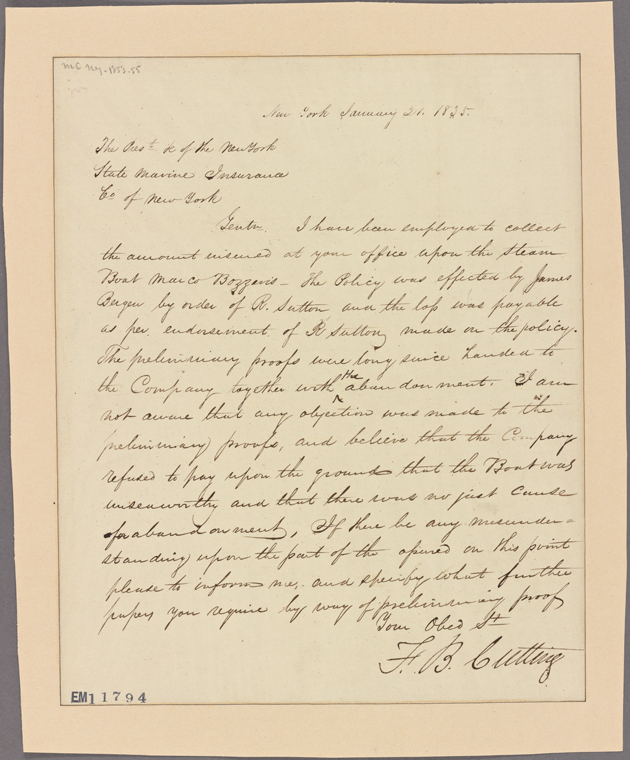 MC NY-1853-55
New York January 21. 1835.
The Prest. &c of the New York
State Marine Insurance
Co of New York
Gentn. I have been employed to collect
the amount insured at your office upon the Steam
Boat Marco Bozzaris - the Policy was effected by James
Bergen by order of R. Sutton and the loss was payable
as per endorsement of R Sutton made on the policy.
The preliminary proofs were long since handed to
the Company together with the abandonment. I am
not aware that any objection was made to the
preliminary proofs, and believe that the Company
refused to pay upon the grounds that the Boat was
unseaworthy and that there was no just cause
for abandonment, If there be any misunder=
standing upon the part of the on this point
please to inform me, and specify what further
papers you require by way of preliminary proof
Your Obed St
F. B. Cutting
EM11794